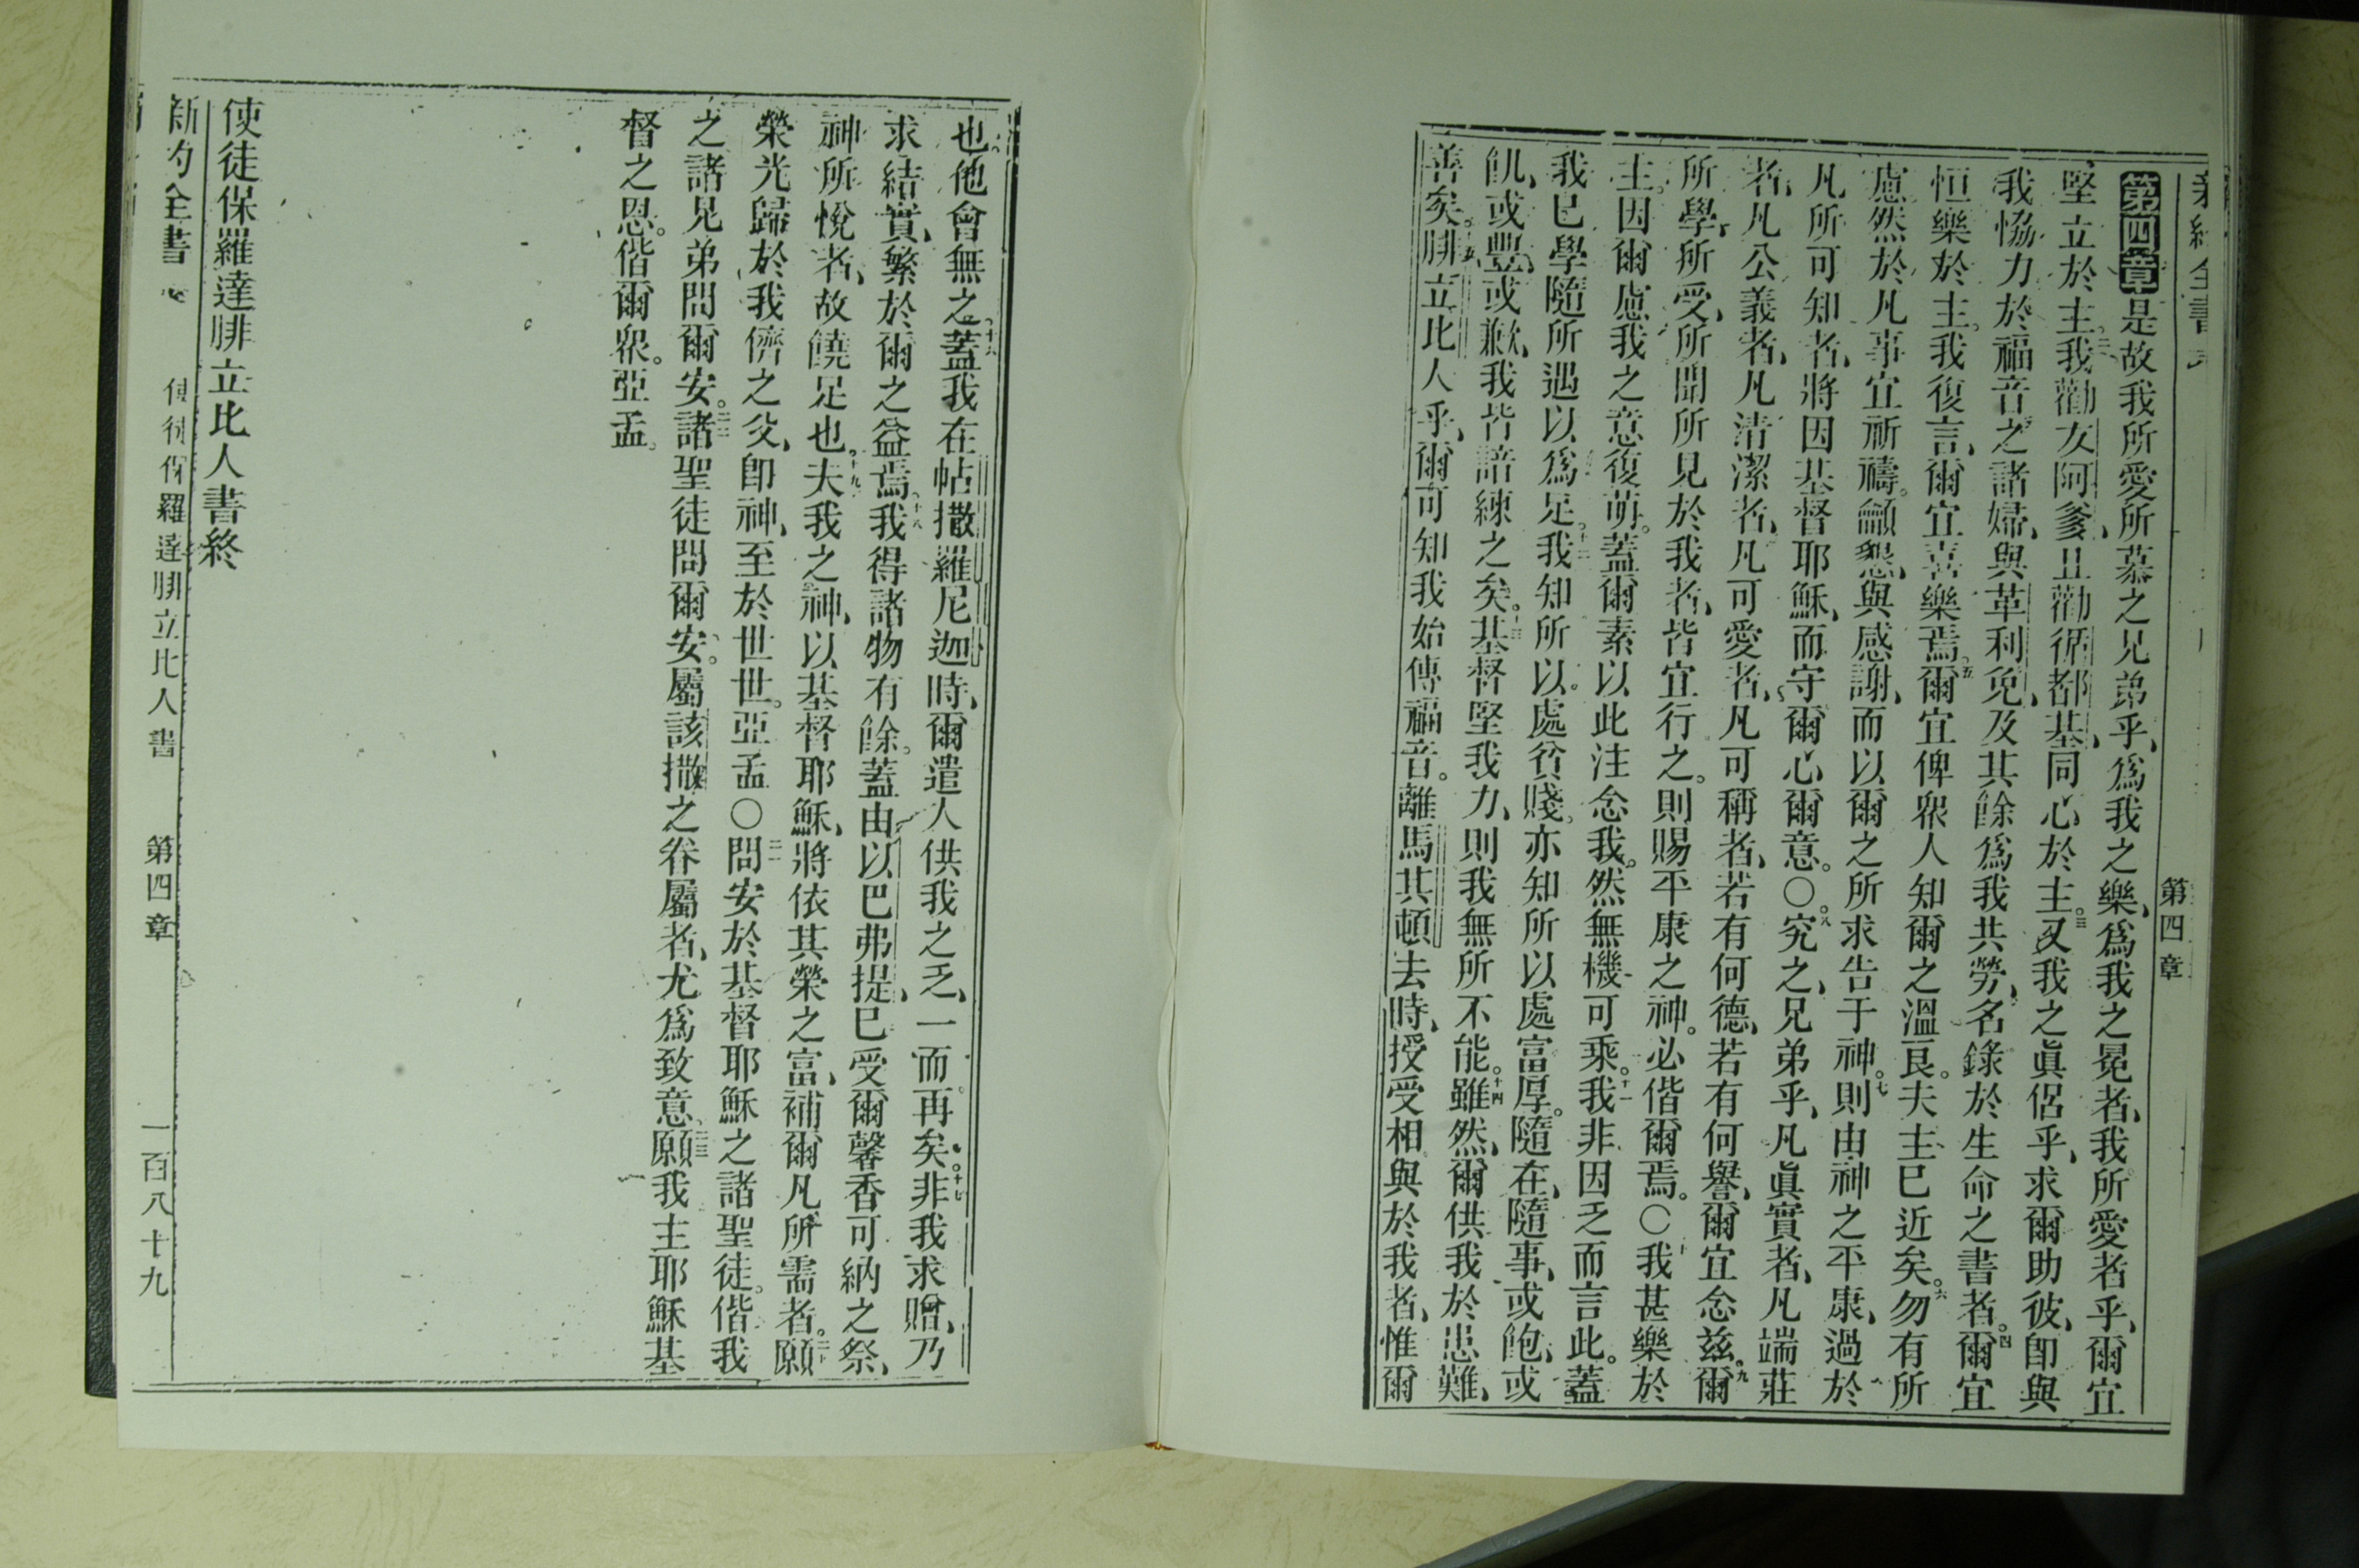 第四章
第四章是故我所愛所慕之兄弟乎、爲我之樂、爲我之冕者、我所愛者乎、爾宜
堅立於主。二我勸友阿爹、且勸循都基、同心於主。三又我之眞侶乎、求爾助彼、卽與
我恊力於福音之諸婦、與革利免、及其餘爲我共勞、名錄於生命之書者。四爾宜
恒樂於主。我復言、爾宜喜樂焉。五爾宜俾眾人知爾之溫良。夫主已近矣。六勿有所
慮然於凡事宜祈禱。籲懇、與感謝、而以爾之所求告于神。七則由神之平康、過於
凡所可知者、將因基督耶穌、而守爾心爾意。〇八究之、兄弟乎、凡眞實者、凡端莊
者、凡公義者、凡清潔者、凡可愛者、凡可稱者、若有何德、若有何譽、爾宜念兹。九爾
所學、所受、所聞所見於我者、皆宜行之。則賜平康之神。必偕爾焉。〇十我甚樂於
主。因爾慮我之意復萌。蓋爾素以此注念我。然無機可乘。十一我非因乏而言此。蓋
我已學隨所遇以爲足。十二我知所以。處貧賤。亦知所以處富厚。隨在、隨事、或飽、或
飢、或豐、或歉、我皆諳練之矣。十三基督堅我力、則我無所不能。十四雖然、爾供我於患難、
善矣。十五腓立比人乎、爾可知我始傳福音。離馬其頓去時、授受相與於我者、惟爾
也。他會無之。十六蓋我在帖撒羅尼迦時、爾遣人供我之乏、一而再矣。十七非我求贈、乃
求結實、繁於爾之益焉。十八我得諸物有餘。蓋由以巴弗提、已受爾馨香可納之祭、
神所悅者、故饒足也。十九夫我之神、以基督耶穌、將依其榮之富、補爾凡所需者。二十願
榮光歸於我儕之父、卽神、至於世世。亞孟〇二一問安於基督耶穌之諸聖徒。偕我
之諸兄弟問爾安。二二諸聖徒問爾安。屬該撒之眷屬者、尤爲致意。二三願我主耶穌基
督之恩。偕爾眾。亞孟。
使徒保羅達腓立比人書終
新約全書 使徒保羅達腓立比人書 第四章 一百八十九